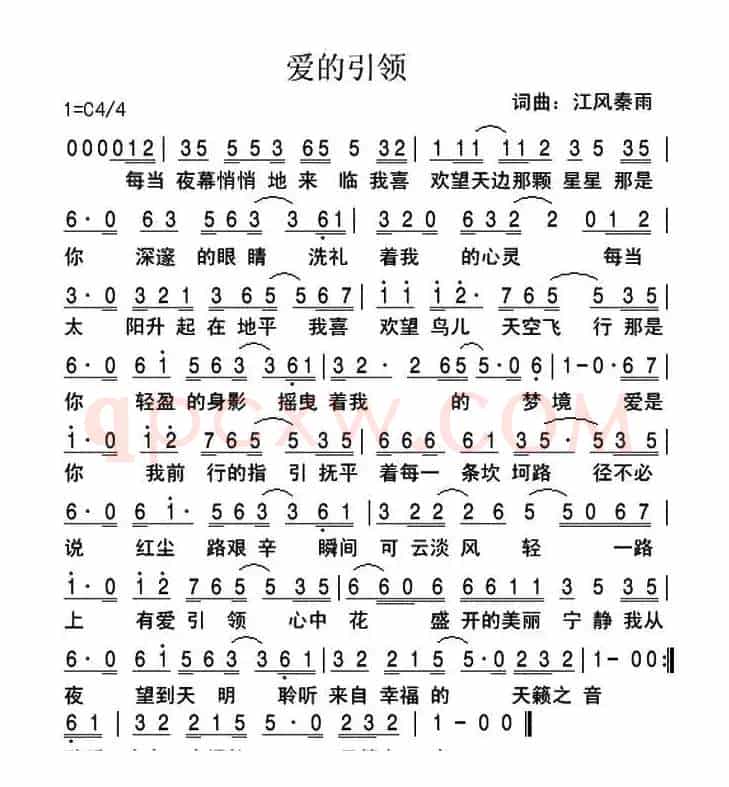 爱的引领
1=C4/4
词曲：江风秦雨
000012 | 35 553 65 5 32 | 1 11 11 2 3 5 35 |
每当 夜幕悄悄 地 来 临 我喜 欢望天边那颗 星星 那是
6·0 63 563 3 61 | 320 632 2 012 |
你 深邃 的眼 睛 洗礼 着我 的心灵 每当
3·0 321 365 567 | i i i2· 765 5 535 |
太 阳升 起 在 地平 我喜 欢望鸟儿 天空飞 行 那是
6·0 6i 563 3 61 | 32· 265 5·06 | 1-0·67 |
你 轻盈 的身影 摇曳 着我 的 梦 境 爱是
i·0 i2 765 5 35 | 666 661 35· 535 |
你 我前 行的指 引 抚平 着每一 条坎 坷路 径不必
6·0 6i· 563 361 | 322 265 5067 |
说 红尘 路艰 辛 瞬间 可 云淡 风 轻 一路
i·0 i2 765 535 | 6 6606 6611 3 535 |
上 有爱 引 领 心中 花 盛 开的美丽 宁 静 我从
6·0 6i 563 361 | 32 2215 5·0232 | 1-00:‖
夜 望到天 明 聆听 来自 幸福 的 天籁之 音
61 | 32 2155 5·0 232 | 1-00‖
qpcxw.com